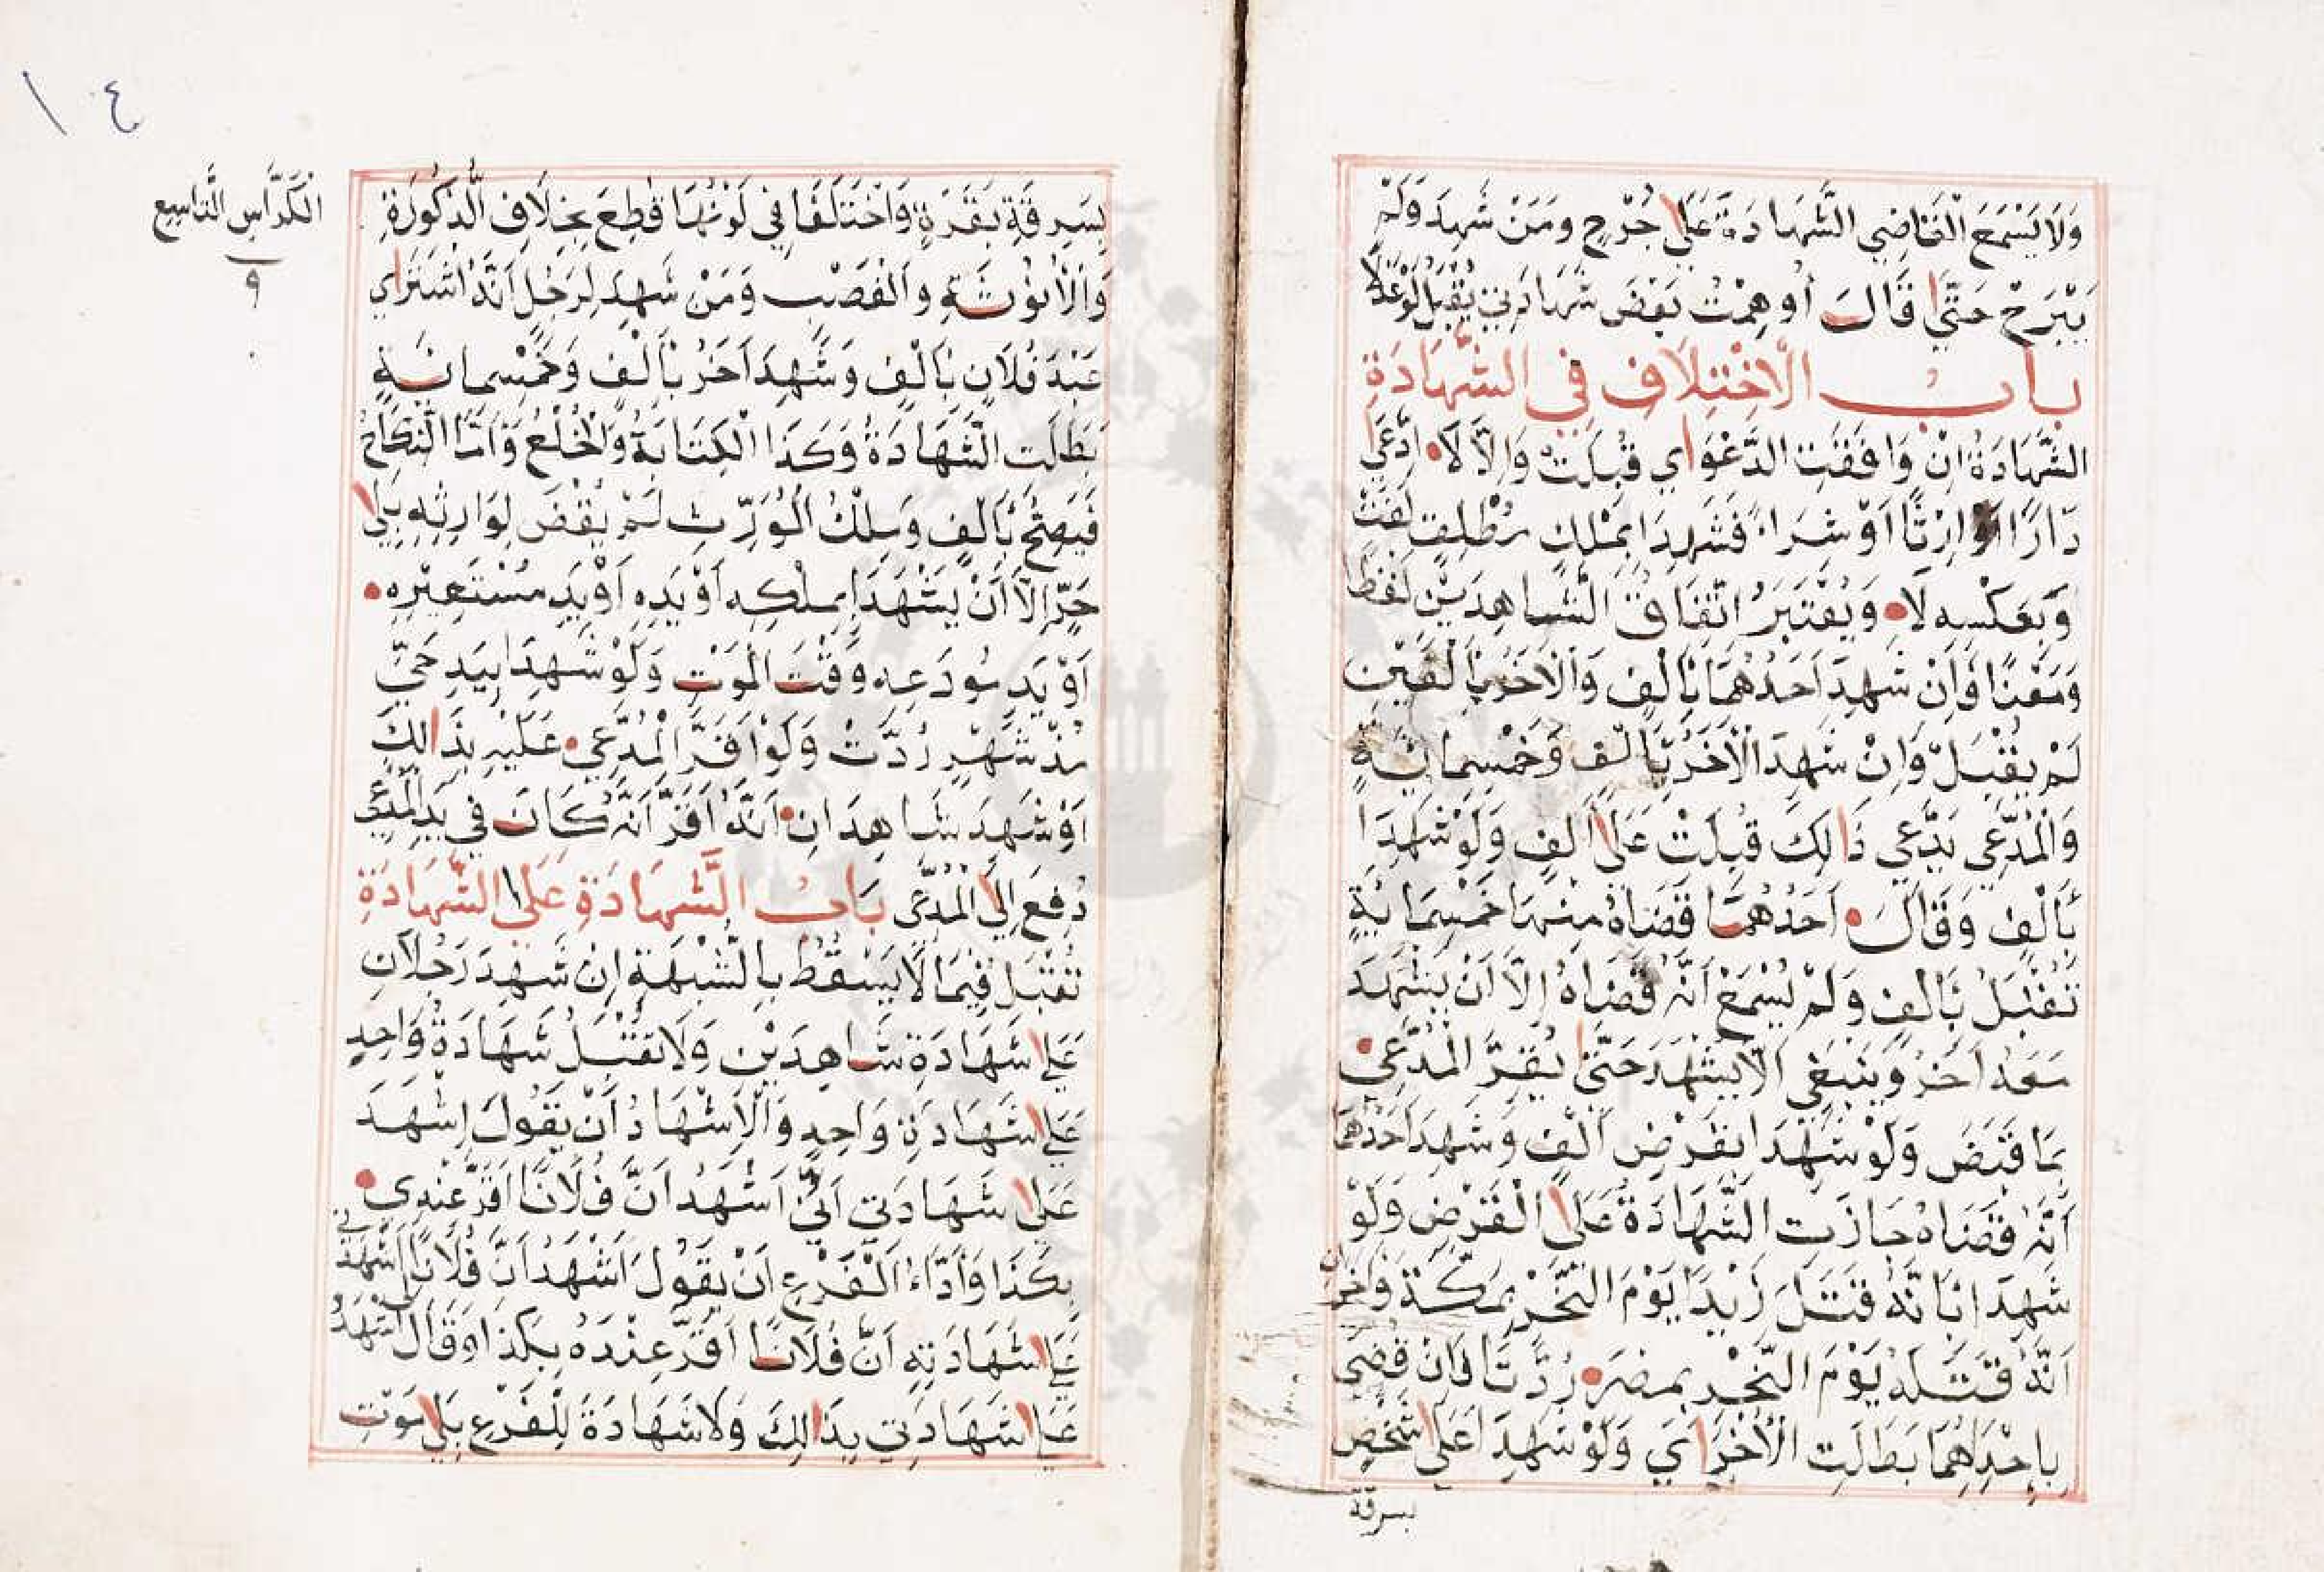 وَلَا يَسْمَعُ الْقَاضِي الشَّهَادَةَ عَلَى جُرْحٍ وَمَنْ شَهِدَ وَلَمْ
يَبْرَحْ حَتَّى قَالَ أُوهِمْتُ بَعْضَ شَهَادَتِي يُقْبَلُ لَوْ عَدْلًا
بابُ الْاِخْتِلَافِ فِي الشَّهَادَةِ
الشَّهَادَةُ اِنْ وَافَقَتِ الدَّعْوَاي قُبِلَتْ وَاِلَّا لَا اِدَّعَى
دَارًا اِرْثًا اَوْ شِرَاءً فَشَهِدَا بِمِلْكٍ مُطْلِقٍ لَغَتْ
وَبِعَكْسِهِ لَا وَيُعْتَبَرُ اتِّفَاقُ الشَّاهِدَيْنِ لَفْظًا
وَمَعْنًا فَاِنْ شَهِدَ اَحَدُهُمَا بِاَلْفٍ وَالْاٰخَرُ بِاَلْفَيْنِ
لَمْ يُقْبَلْ وَاِنْ شَهِدَ الْاٰخَرُ بِاَلْفٍ وَخَمْسِمِائَةٍ
وَالْمُدَّعِي يَدَّعِي ذَالِكَ قُبِلَتْ عَلَى اَلْفٍ وَلَوْ شَهِدَا
بِاَلْفٍ وَقَالَ اَحَدُهُمَا قَضَاهُ مِنْهَا خَمْسَمِايَةٍ
تُقْبَلُ بِاَلْفٍ وَلَمْ يُسْمَعْ اَنَّهُ قَضَاهُ اِلَّا اَنْ يَشْهَدَ
مَعَهُ اٰخَرُ وَيَنْبَغِي اَلَّا يَشْهَدَ حَتَّى يُقِرَّ الْمُدَّعِي
بِمَا قَبَضَ وَلَوْ شَهِدَا بِقَرْضِ اَلْفٍ وَشَهِدَ اَحَدُهُمَا
اَنَّهُ قَضَاهُ جَازَتِ الشَّهَادَةُ عَلَى الْقَرْضِ وَلَوْ
شَهِدَا بِاَنَّهُ قَتَلَ زَيْدًا يَوْمَ النَّحْرِ بِمَكَّةَ وَاٰخَرَانِ
اَنَّهُ قَتَلَهُ يَوْمَ النَّحْرِ بِمِصْرَ رُدَّتَا فَاِنْ قُضِيَ
بِاِحْدَاهُمَا بَطَلَتِ الْاُخْرَاي وَلَوْ شَهِدَا عَلَى شَخْصٍ
بسرقة
١٠٤
الْكُرَّاسِ التَّاسِع
٩
بِسَرِقَةِ بَقَرَةٍ وَاخْتَلَفَا فِي لَوْنِهَا قُطِعَ بِخِلَافِ الذُّكُورَةِ
وَالْاُنُوثَةِ وَالْغَصْبِ وَمَنْ شَهِدَ لِرَجُلٍ اَنَّهُ اشْتَرَاي
عَبْدَ فُلَانٍ بِاَلْفٍ وَشَهِدَ اٰخَرُ بِاَلْفٍ وَخَمْسِمِائَةٍ
بَطَلَتِ الشَّهَادَةُ وَكَذَا الْكِتَابَةُ وَالْخُلْعُ وَاَمَّا النِّكَاحُ
فَيَصِحُّ بِاَلْفٍ وَمِلْكُ الْمُوَرِّثِ لَمْ يُقْضَ لِوَارِثِهِ بِلَا
جَرٍّ اِلَّا اَنْ يَشْهَدَا بِمِلْكِهِ اَوْ يَدِهِ اَوْ يَدِ مُسْتَعِيْرِهِ
اَوْ يَدِ مُودَعِهِ وَقْتَ الْمَوْتِ وَلَوْ شَهِدَا بِيَدِ حَيٍّ
مُذْ شَهْرٍ رُدَّتْ وَلَوْ اَقَرَّ الْمُدَّعِي عَلَيْهِ بِذَالِكَ
اَوْ شَهِدَ شَاهِدَانِ اَنَّهُ اَقَرَّ اَنَّهُ كَانَ فِي يَدِ الْمُدَّعِي
دُفِعَ اِلَى الْمُدَّعَى بَابُ الشَّهَادَةِ عَلَى الشَّهَادَةِ
تُقْبَلُ فِيْمَا لَا يَسْقُطُ بِالشُّبْهَةِ اِنْ شَهِدَ رَجُلَانِ
عَلَى شَهَادَةِ شَاهِدَيْنِ وَلَا تُقْبَلُ شَهَادَةُ وَاحِدٍ
عَلَى شَهَادَةِ وَاحِدٍ وَالْاِشْهَادُ اَنْ يَقُولَ اِشْهَدَ
عَلَى شَهَادَتِي اَنِّي اَشْهَدُ اَنَّ فُلَانًا اَقَرَّ عِنْدِي
بِكَذَا وَاَدَاءُ الْفَرْعِ اَنْ يَقُولَ اَشْهَدُ اَنَّ فُلَانًا اَشْهَدَنِي
عَلَى شَهَادَتِهِ اَنَّ فُلَانًا اَقَرَّ عِنْدَهُ بِكَذَا وَقَالَ لِي اشْهَدْ
عَلَى شَهَادَتِي بِذَالِكَ وَلَا شَهَادَةَ لِلْفَرْعِ بِلَا مَوْتِ